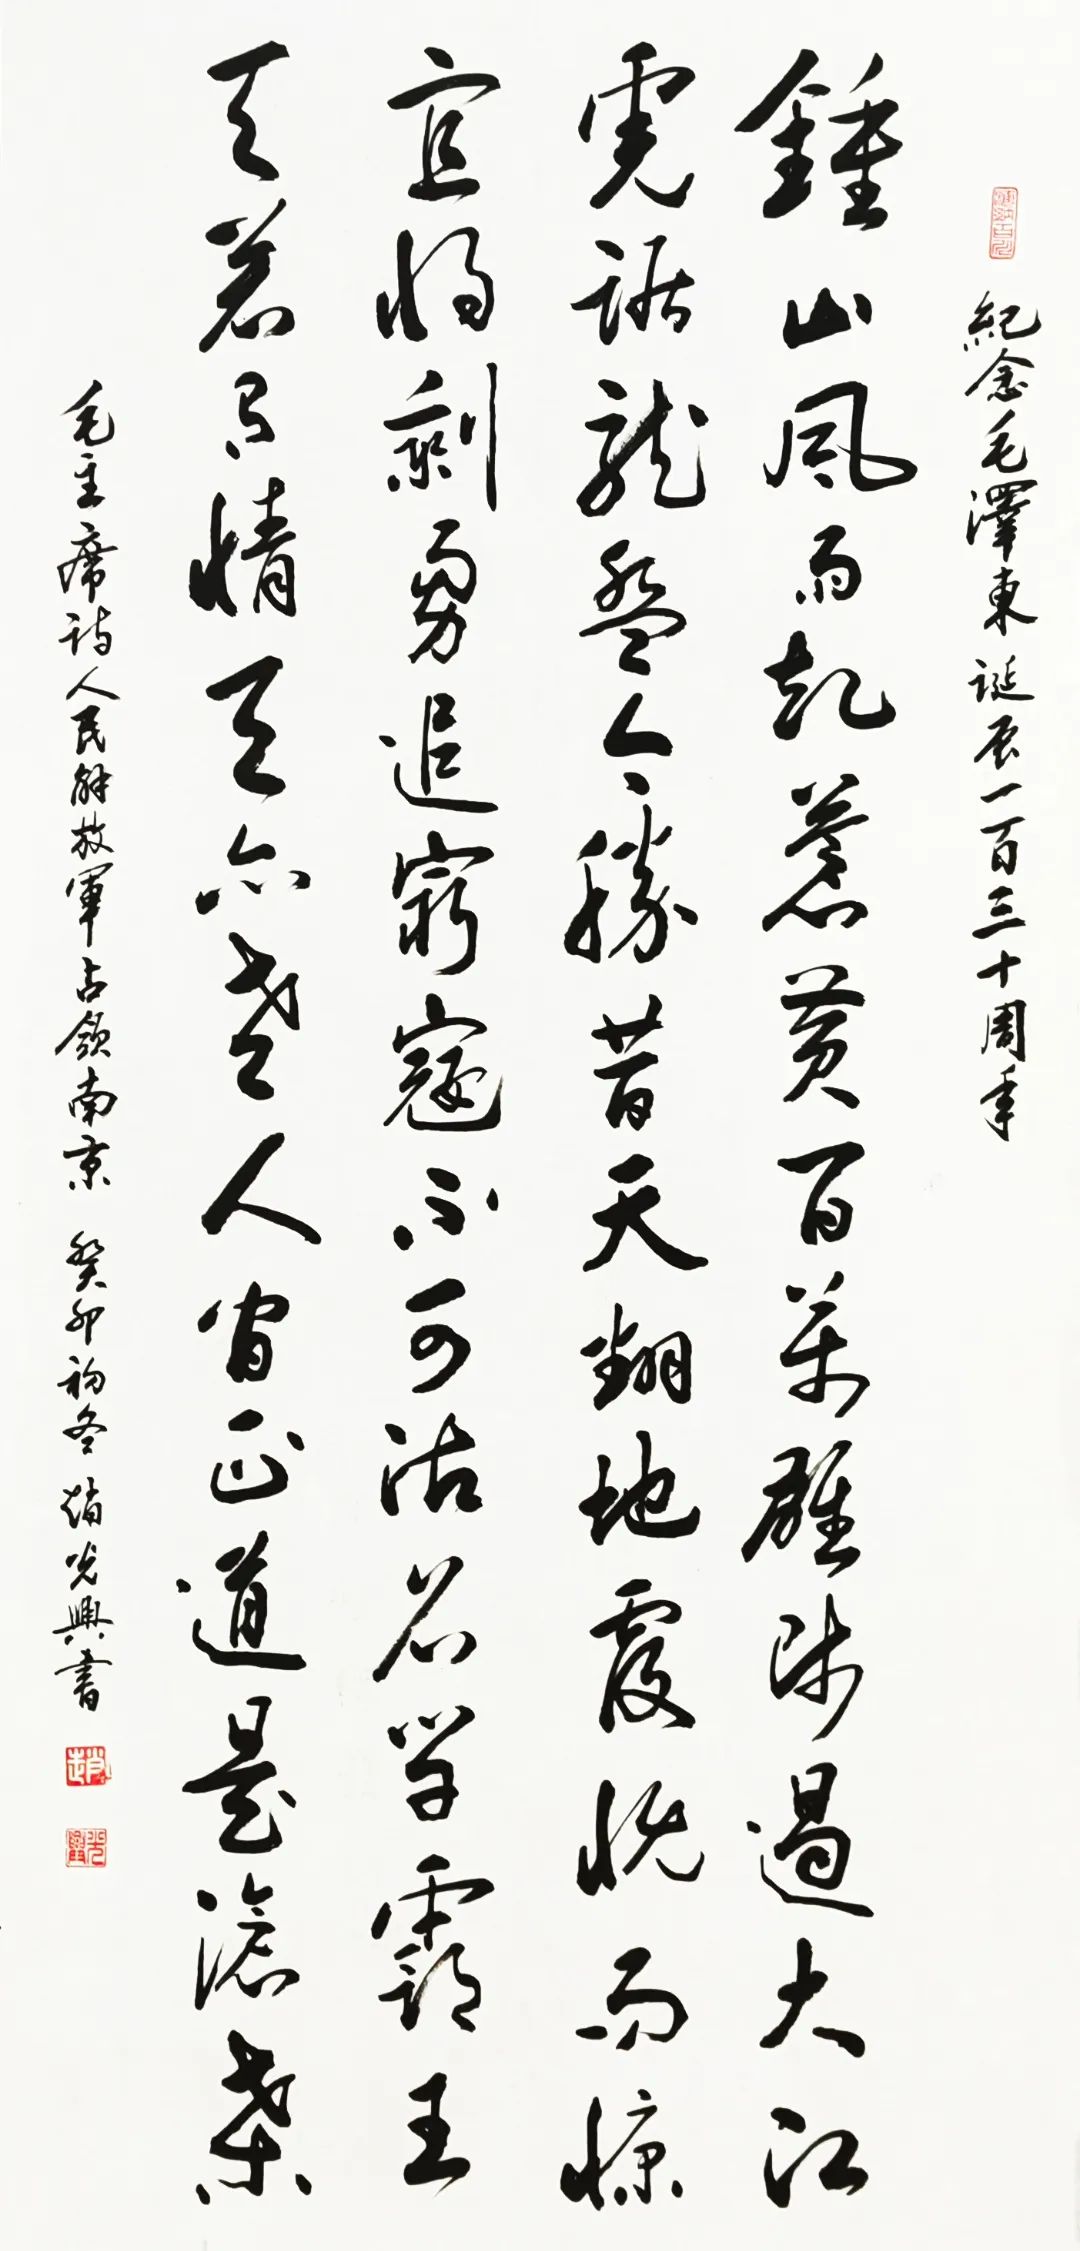 紀念毛澤東誕辰一百三十周年
鍾山風雨起蒼黄百萬雄師過大江
虎踞龍盤今勝昔天翻地覆慨而慷
宜將剩勇追窮寇不可沽名學霸王
天若有情天亦老人間正道是滄桑
毛主席詩人民解放軍占領南京 癸卯初冬趙光興書
趙
光興